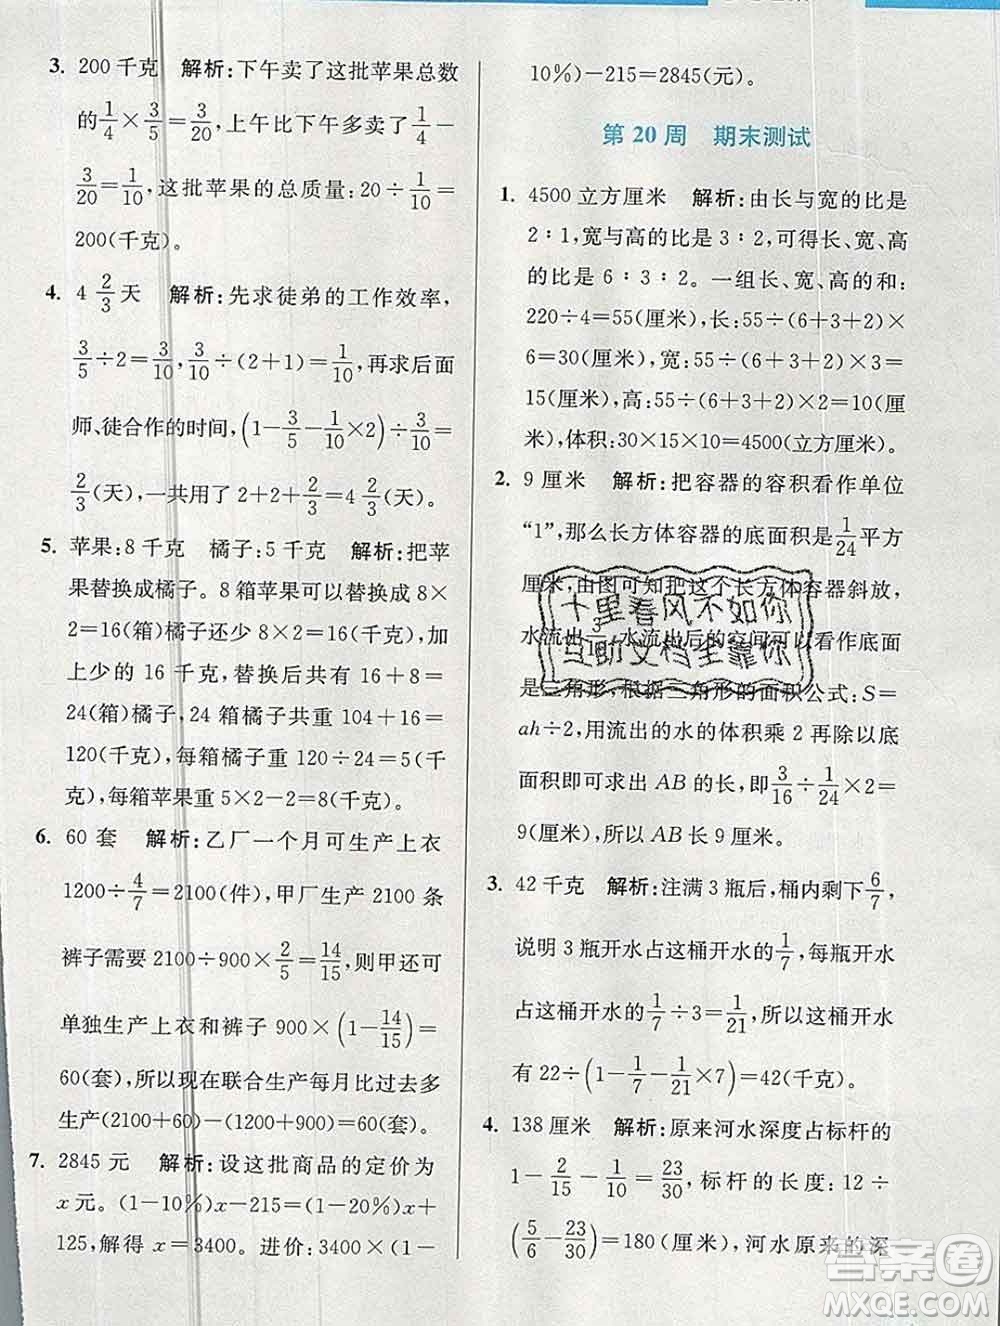 3. 200 千克　解析:下午卖了这批苹果总数
的 1/4 × 3/5 = 3/20，上午比下午多卖了 1/4 −
3/20 = 1/10，这批苹果的总质量: 20 ÷ 1/10 =
200(千克)。
4. 4 2/3 天　解析:先求徒弟的工作效率，
3/5 ÷ 2 = 3/10，3/10 ÷ (2+1) = 1/10，再求后面
师、徒合作的时间，(1 − 3/5 − 1/10 × 2) ÷ 3/10 =
2/3 (天)，一共用了 2+2+ 2/3 = 4 2/3 (天)。
5. 苹果:8 千克　橘子:5 千克　解析:把苹
果替换成橘子。8 箱苹果可以替换成 8×
2=16(箱)橘子还少 8×2=16(千克)，
加上少的 16 千克，替换后共有 16+8=
24(箱)橘子，24 箱橘子共重 104+16=
120(千克)，每箱橘子重 120÷24=5(千
克)，每箱苹果重 5×2−2=8(千克)。
6. 60 套　解析:乙厂一个月可生产上衣
1200 ÷ 4/7 = 2100(件)，甲厂生产 2100 条
裤子需要 2100÷900× 2/5 = 14/15，则甲还可
单独生产上衣和裤子 900 × (1 − 14/15) =
60(套)，所以现在联合生产每月比过去多
生产(2100+60)−(1200+900)=60(套)。
7. 2845 元　解析:设这批商品的定价为
x 元。(1−10%)x−215=(1−20%)x+
125，解得 x=3400。进价:3400×(1−
10%)−215=2845(元)。
第 20 周　期末测试
1. 4500 立方厘米　解析:由长与宽的比是
2∶1，宽与高的比是 3∶2，可得长、宽、高
的比是 6∶3∶2。一组长、宽、高的和:
220÷4=55(厘米)，长:55÷(6+3+2)×
6=30(厘米)，宽:55÷(6+3+2)×3=
15(厘米)，高:55÷(6+3+2)×2=10(厘
米)，体积:30×15×10=4500(立方厘米)。
2. 9 厘米　解析:把容器的容积看作单位
“1”，那么长方体容器的底面积是 1/24 平方
厘米，由图可知把这个长方体容器斜放，
水流出 ，水流出后的空间可以看作底面
是三角形，根据三角形的面积公式: S=
ah÷2，用流出的水的体积乘 2 再除以底
面积即可求出 AB 的长，即 3/16 ÷ 1/24 × 2 =
9(厘米)，所以 AB 长 9 厘米。
3. 42 千克　解析:注满 3 瓶后，桶内剩下 6/7，
说明 3 瓶开水占这桶开水的 1/7，每瓶开水
占这桶开水的 1/7 ÷ 3 = 1/21，所以这桶开水
有 22 ÷ (1 − 1/7 − 1/21 × 7) = 42(千克)。
4. 138 厘米　解析:原来河水深度占标杆的
1 − 2/15 − 1/10 = 23/30，标杆的长度: 12 ÷
(5/6 − 23/30) = 180(厘米)，河水原来的深
十里春风不如你
互助文档坐靠你
答案圈
MXQE.COM